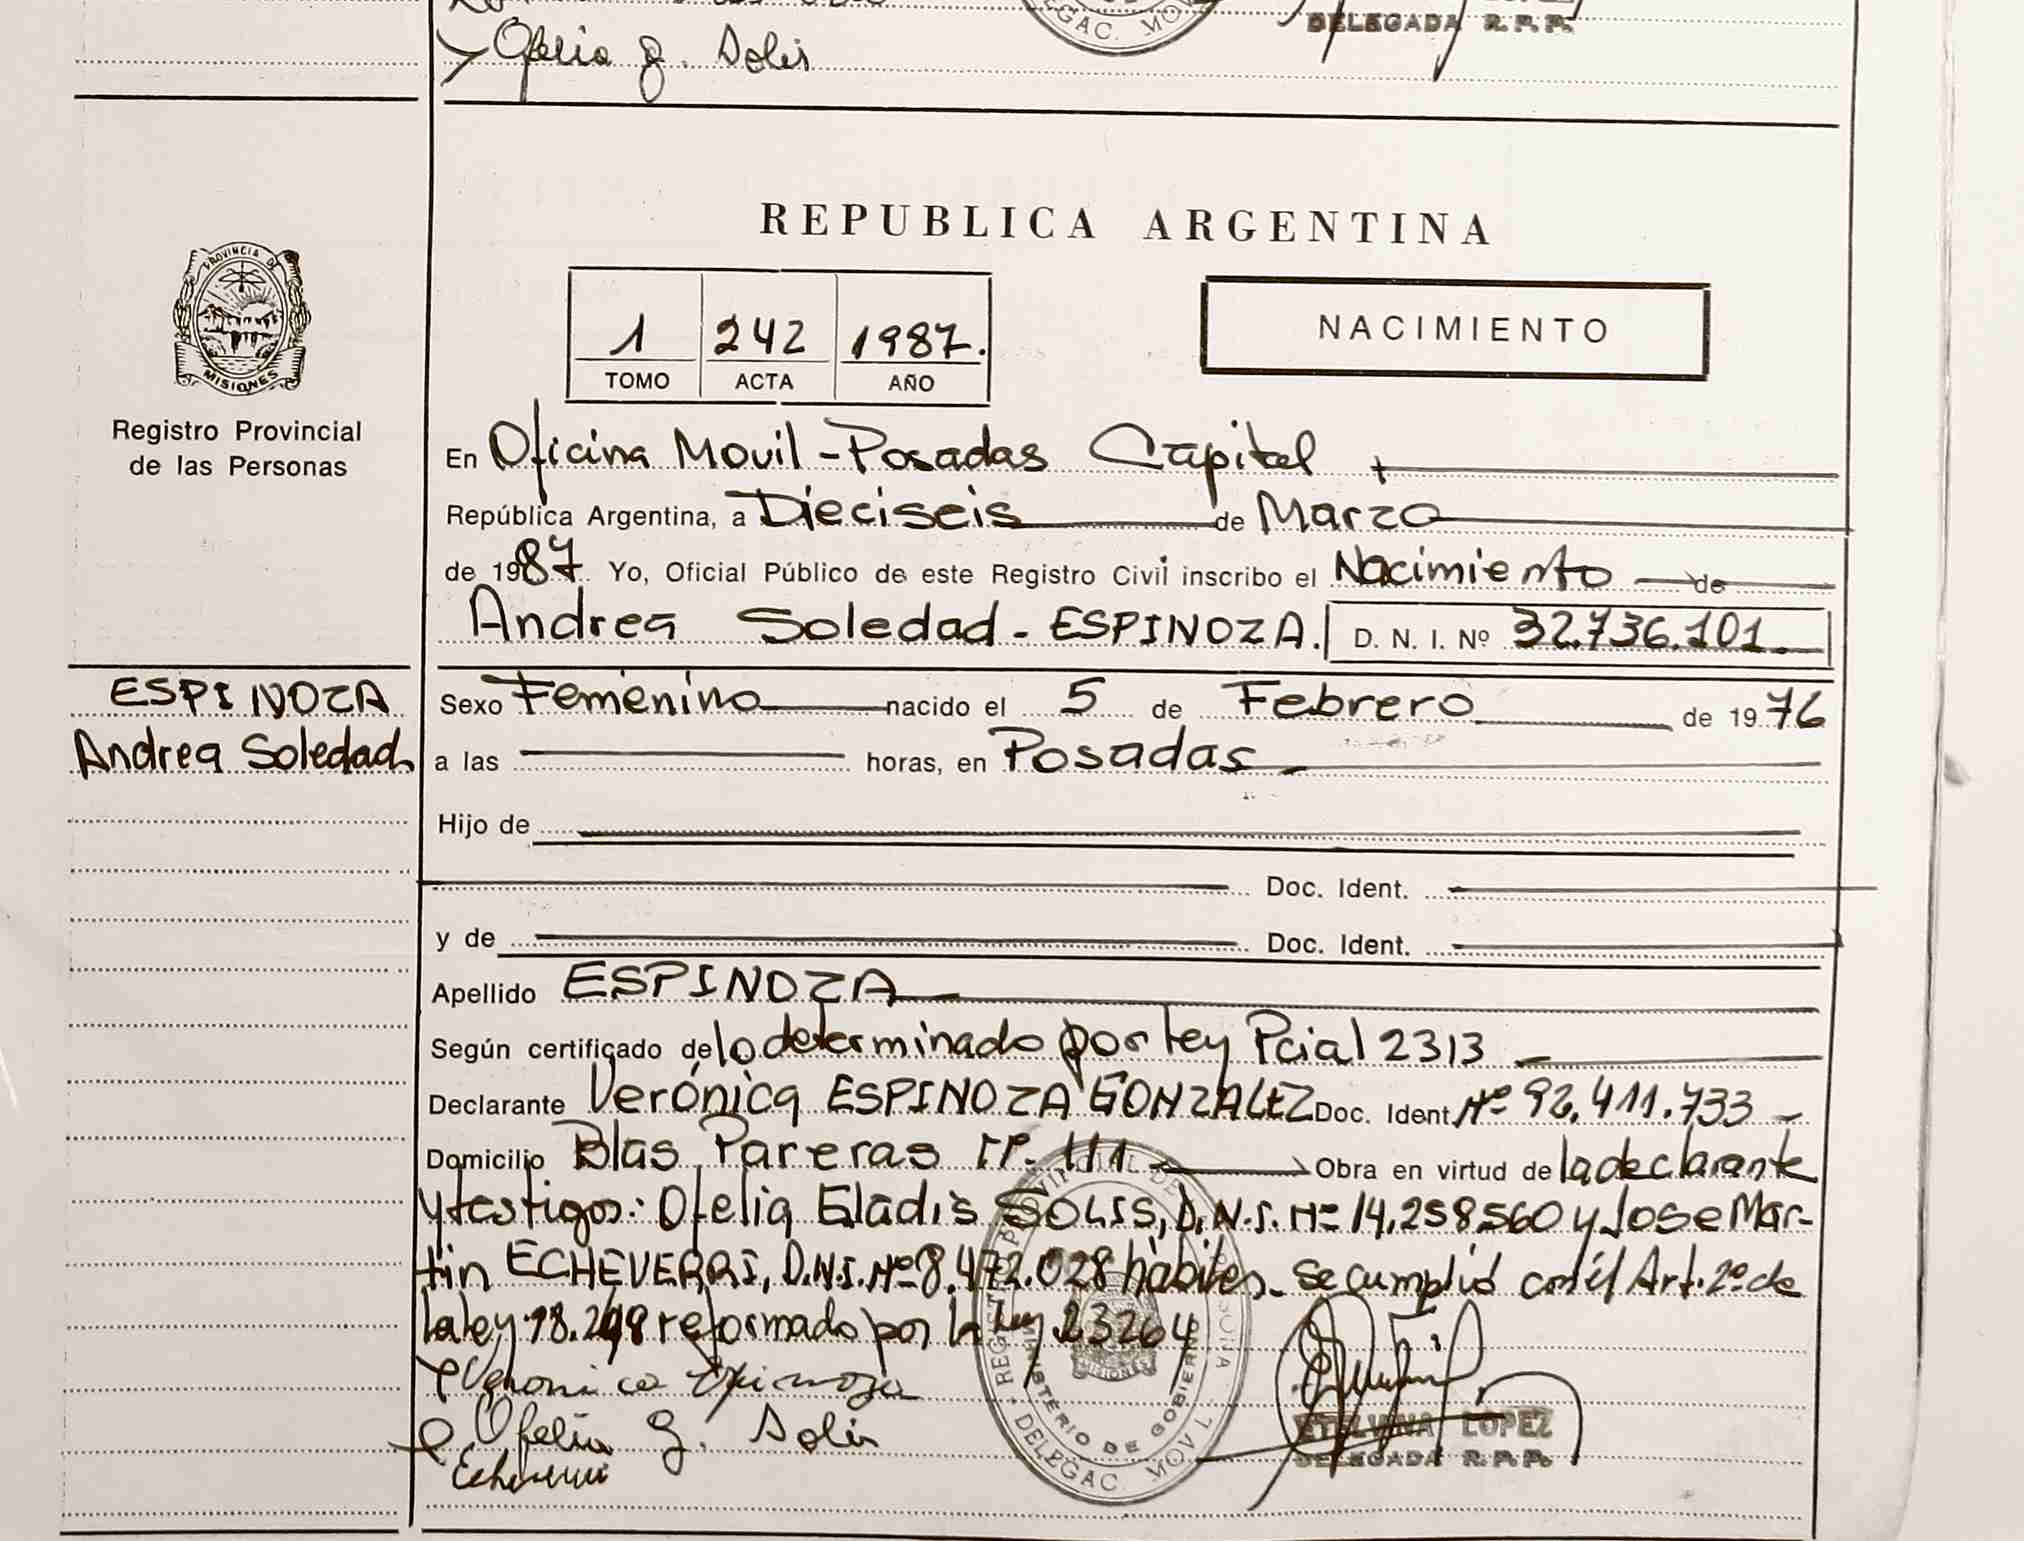 Ofelia G. Solis
DELEGAC. MOV
DELEGADA R.P.P.
REPUBLICA ARGENTINA
PROVINCIA DE
MISIONES
Registro Provincial
de las Personas
1 242 1987.
TOMO ACTA AÑO
NACIMIENTO
En Oficina Movil - Posadas Capital
República Argentina, a Dieciseis de Marzo
de 1987 Yo, Oficial Público de este Registro Civil inscribo el Nacimiento de
Andrea Soledad - ESPINOZA. D. N. I. Nº 32.736.101.
ESPINOZA
Andrea Soledad
Sexo Femenino nacido el 5 de Febrero de 1976
a las horas, en Posadas
Hijo de
Doc. Ident.
y de Doc. Ident.
Apellido ESPINOZA
Según certificado de lo determinado por ley Pcial 2313
Declarante Verónica ESPINOZA GONZALEZ Doc. Ident. Nº 92.411.733
Domicilio Blas Pareras Nº. 111 Obra en virtud de la declarante
y testigos: Ofelia Gladis SOLIS, D.N.I. Nº 14.258560 y Jose Mar-
tin ECHEVERRI, D.N.I. Nº 8.472.028 hábiles. se cumplió con el Art. 2º de
la ley 18.248 reformado por la Ley 23264
Veronica Espinoza
Ofelia G. Solis
Echeverri
REGISTRO PROVINCIAL DE
MINISTERIO DE GOBIERNO
DELEGAC. MOVIL
ETELVINA LOPEZ
DELEGADA R.P.P.